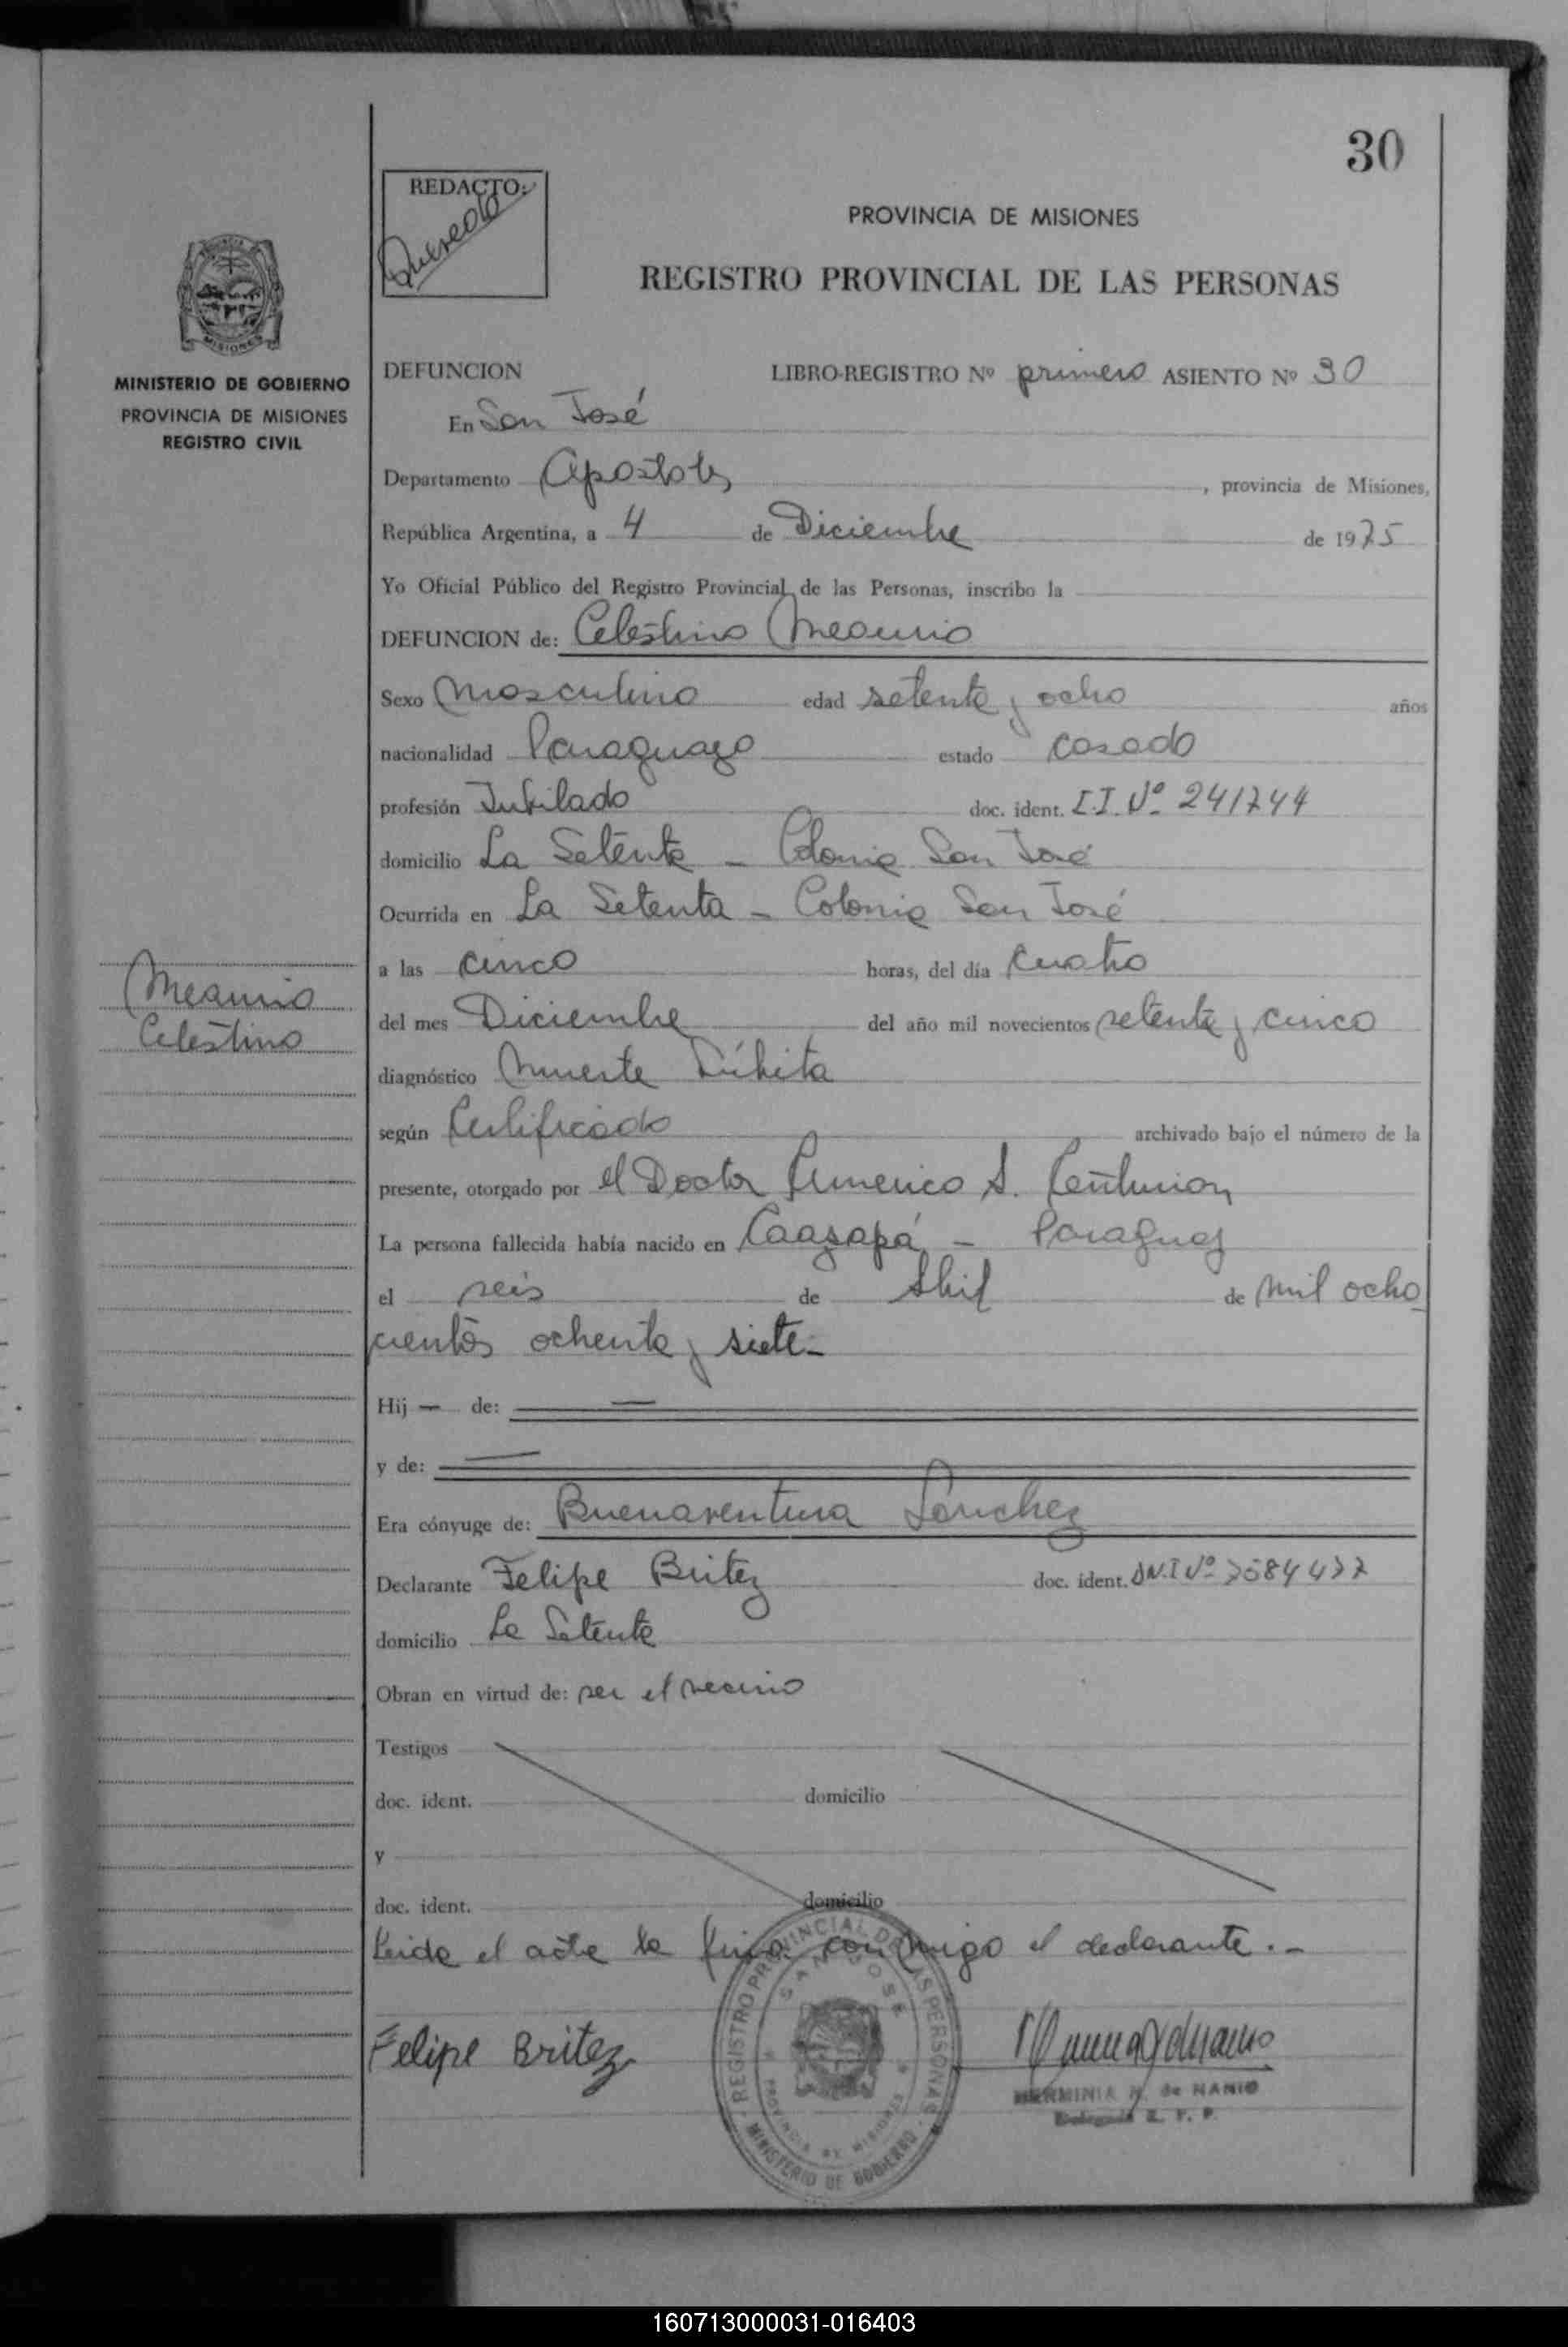 30
REDACTO:
PROVINCIA DE MISIONES
REGISTRO PROVINCIAL DE LAS PERSONAS
MISIONES
MINISTERIO DE GOBIERNO
PROVINCIA DE MISIONES
REGISTRO CIVIL
DEFUNCION LIBRO-REGISTRO Nº primero ASIENTO Nº 30
En San José
Departamento Apostoles, provincia de Misiones,
República Argentina, a 4 de Diciembre de 1975
Yo Oficial Público del Registro Provincial de las Personas, inscribo la
DEFUNCION de: Celestino
Sexo Masculino edad setenta y ocho años
nacionalidad Paraguayo estado casado
profesión Jubilado doc. ident. C.I. Nº 241744
domicilio La Setenta - Colonia San José
Ocurrida en La Setenta - Colonia San José
a las cinco horas, del día cuatro
Celestino
del mes Diciembre del año mil novecientos setenta y cinco
diagnóstico Muerte Súbita
según Certificado archivado bajo el número de la
presente, otorgado por el Doctor S. Centurion
La persona fallecida había nacido en Caazapá - Paraguay
el seis de Abril de mil ocho
cientos ochenta y siete-
Hij — de: —
y de: —
Era cónyuge de: Buenaventura Sanchez
Declarante Felipe Britez doc. ident. D.N.I Nº 7584477
domicilio La Setenta
Obran en virtud de: ser el vecino
Testigos
doc. ident. domicilio
y
doc. ident. domicilio
Leida el acta la firma conmigo el declarante.-
REGISTRO PROVINCIAL DE LAS PERSONAS
SAN JOSE
PROVINCIA DE MISIONES
MINISTERIO DE GOBIERNO
Felipe Britez
HERMINIA N. de NANIO
160713000031-016403